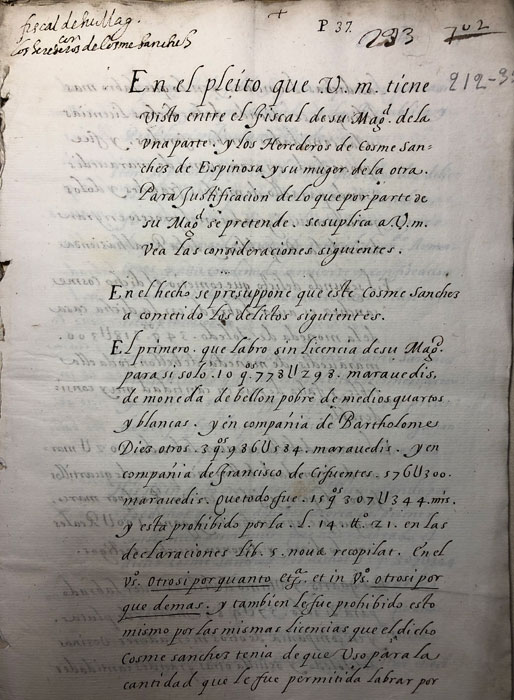 fiscal de su Mag.
con
los herederos de Cosme Sanchez
P 37.
233
702
212-3
En el pleito que V. m. tiene
visto entre el fiscal de su Mag.d de la
vna parte. y los Herederos de Cosme San-
ches de Espinosa y su muger de la otra.
Para Justificacion de lo que por parte de
su Mag.d se pretende. se suplica a V. m.
vea las consideraciones siguientes.
En el hecho se presuppone que este Cosme Sanches
a cometido los delictos siguientes.
El primero. que labro sin licencia de su Mag.d
para si solo. 10 q.os 778U293. marauedis.
de moneda de bellon pobre de medios quartos
y blancas. y en compañia de Bartholome
Diez otros. 3 q.os 986U584. marauedis. y en
compañia de Francisco de Cifuentes. 576U300.
marauedis. que todo fue. 15 q.os 307U344. mrs.
y esta prohibido por la. l. 14. tt.o 21. en las
declaraciones lib. 5. noua recopilat. En el
vs.o otrosi por quanto etc.a et in vs.o otrosi por
que demas. y tambien le fue prohibido esto
mismo por las mismas licencias que el dicho
Cosme sanchez tenia de que Vso para la
cantidad que le fue permitida labrar por